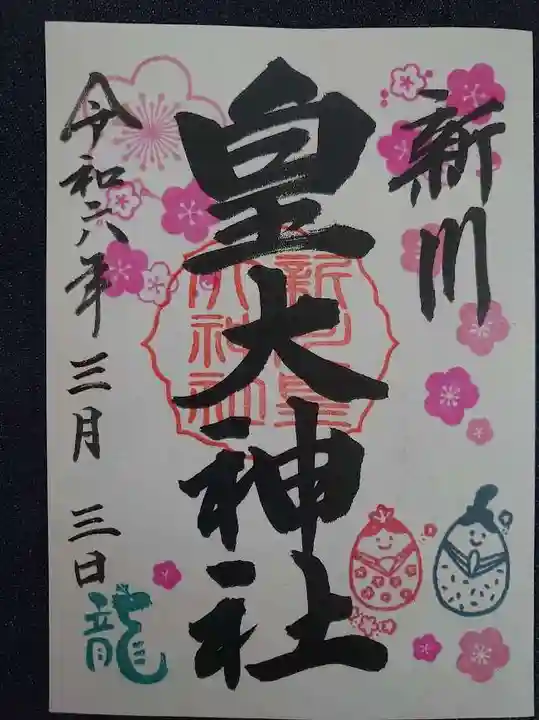 新川
皇大神社
新川皇大神社
令和六年 三月 三日
龍